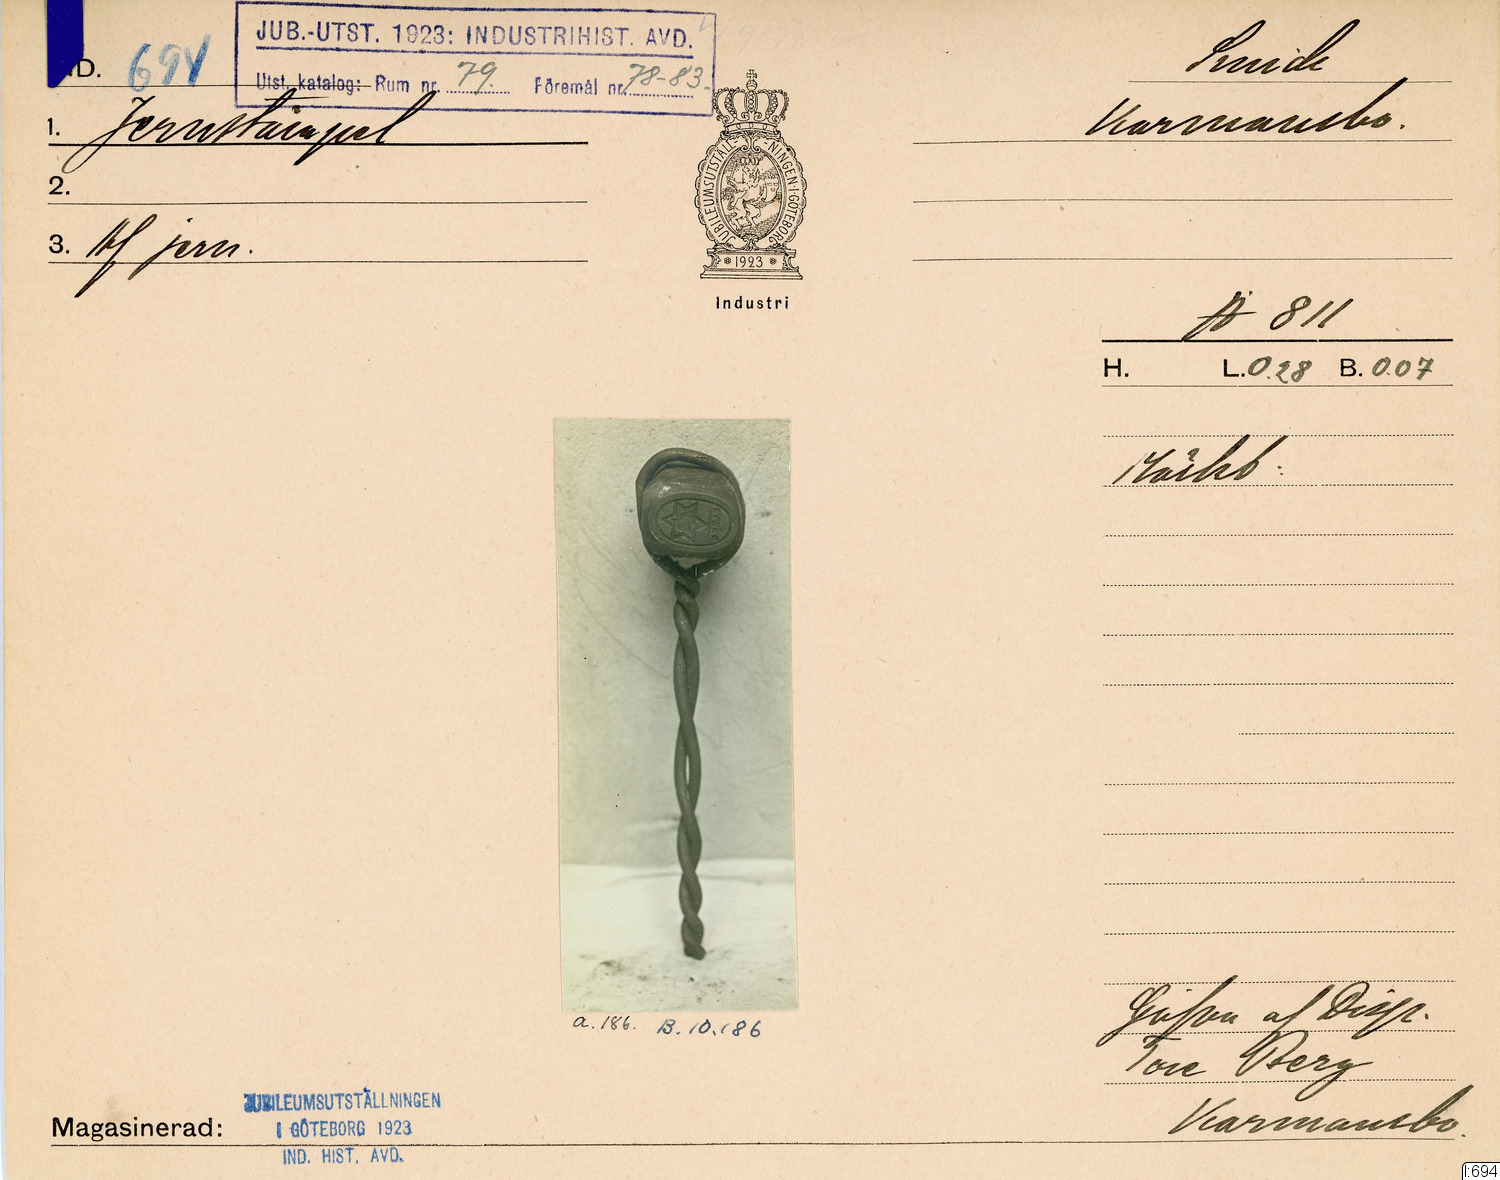 IND. 694
JUB.-UTST. 1923: INDUSTRIHIST. AVD.
Utst. katalog: Rum nr. 79. Föremål nr. 78-83.
1. Jernstämpel
2.
3. Af jern.
JUBILEUMSUTSTÄLLNINGEN·I·GÖTEBORG
* 1923 *
Industri
Smide
Karmansbo.
811
H. L. 0.28 B. 0.07
Märkt:
a. 186. B. 10.186
Gifven af Disp.
Tore Berg
Karmansbo.
Magasinerad:
JUBILEUMSUTSTÄLLNINGEN
I GÖTEBORG 1923
IND. HIST. AVD.
I:694